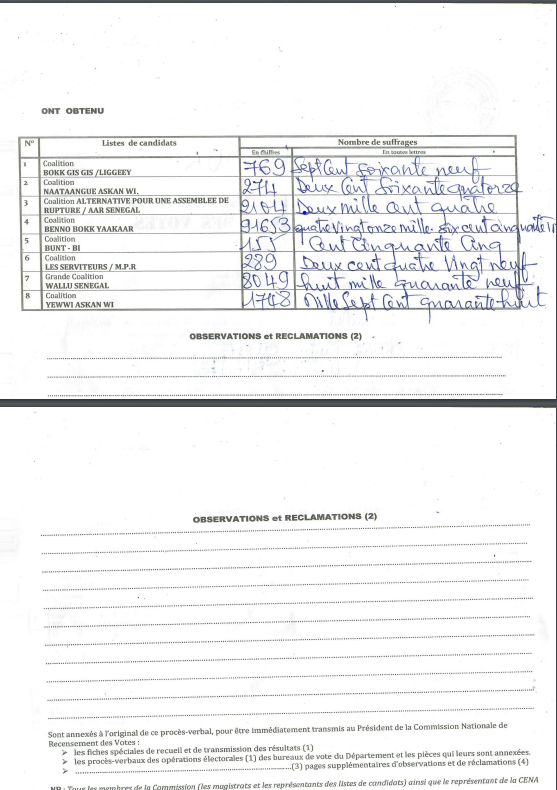 ONT OBTENU
N° Listes de candidats Nombre de suffrages
En chiffres En toutes lettres
1 Coalition
BOKK GIS GIS /LIGGEEY 769 Sept Cent Soixante neuf
2 Coalition
NAATAANGUE ASKAN WI. 274 Deux Cent Soixante quatorze
3 Coalition ALTERNATIVE POUR UNE ASSEMBLEE DE
RUPTURE / AAR SENEGAL 2104 Deux mille Cent quatre
4 Coalition
BENNO BOKK YAAKAAR 91653 quatre Vingt onze mille six cent cinquante
5 Coalition
BUNT - BI 155 Cent Cinquante Cinq
6 Coalition
LES SERVITEURS / M.P.R 289 Deux cent quatre Vingt neuf
7 Grande Coalition
WALLU SENEGAL 8049 huit mille quarante neuf
8 Coalition
YEWWI ASKAN WI 1748 Mille Sept Cent quarante huit
OBSERVATIONS et RECLAMATIONS (2)
OBSERVATIONS et RECLAMATIONS (2)
Sont annexés à l'original de ce procès-verbal, pour être immédiatement transmis au Président de la Commission Nationale de
Recensement des Votes :
➢ les fiches spéciales de recueil et de transmission des résultats (1)
➢ les procès-verbaux des opérations électorales (1) des bureaux de vote du Département et les pièces qui leurs sont annexées.
➢ ........................(3) pages supplémentaires d'observations et de réclamations (4)
NB : Tous les membres de la Commission (les magistrats et les représentants des listes de candidats) ainsi que le représentant de la CENA